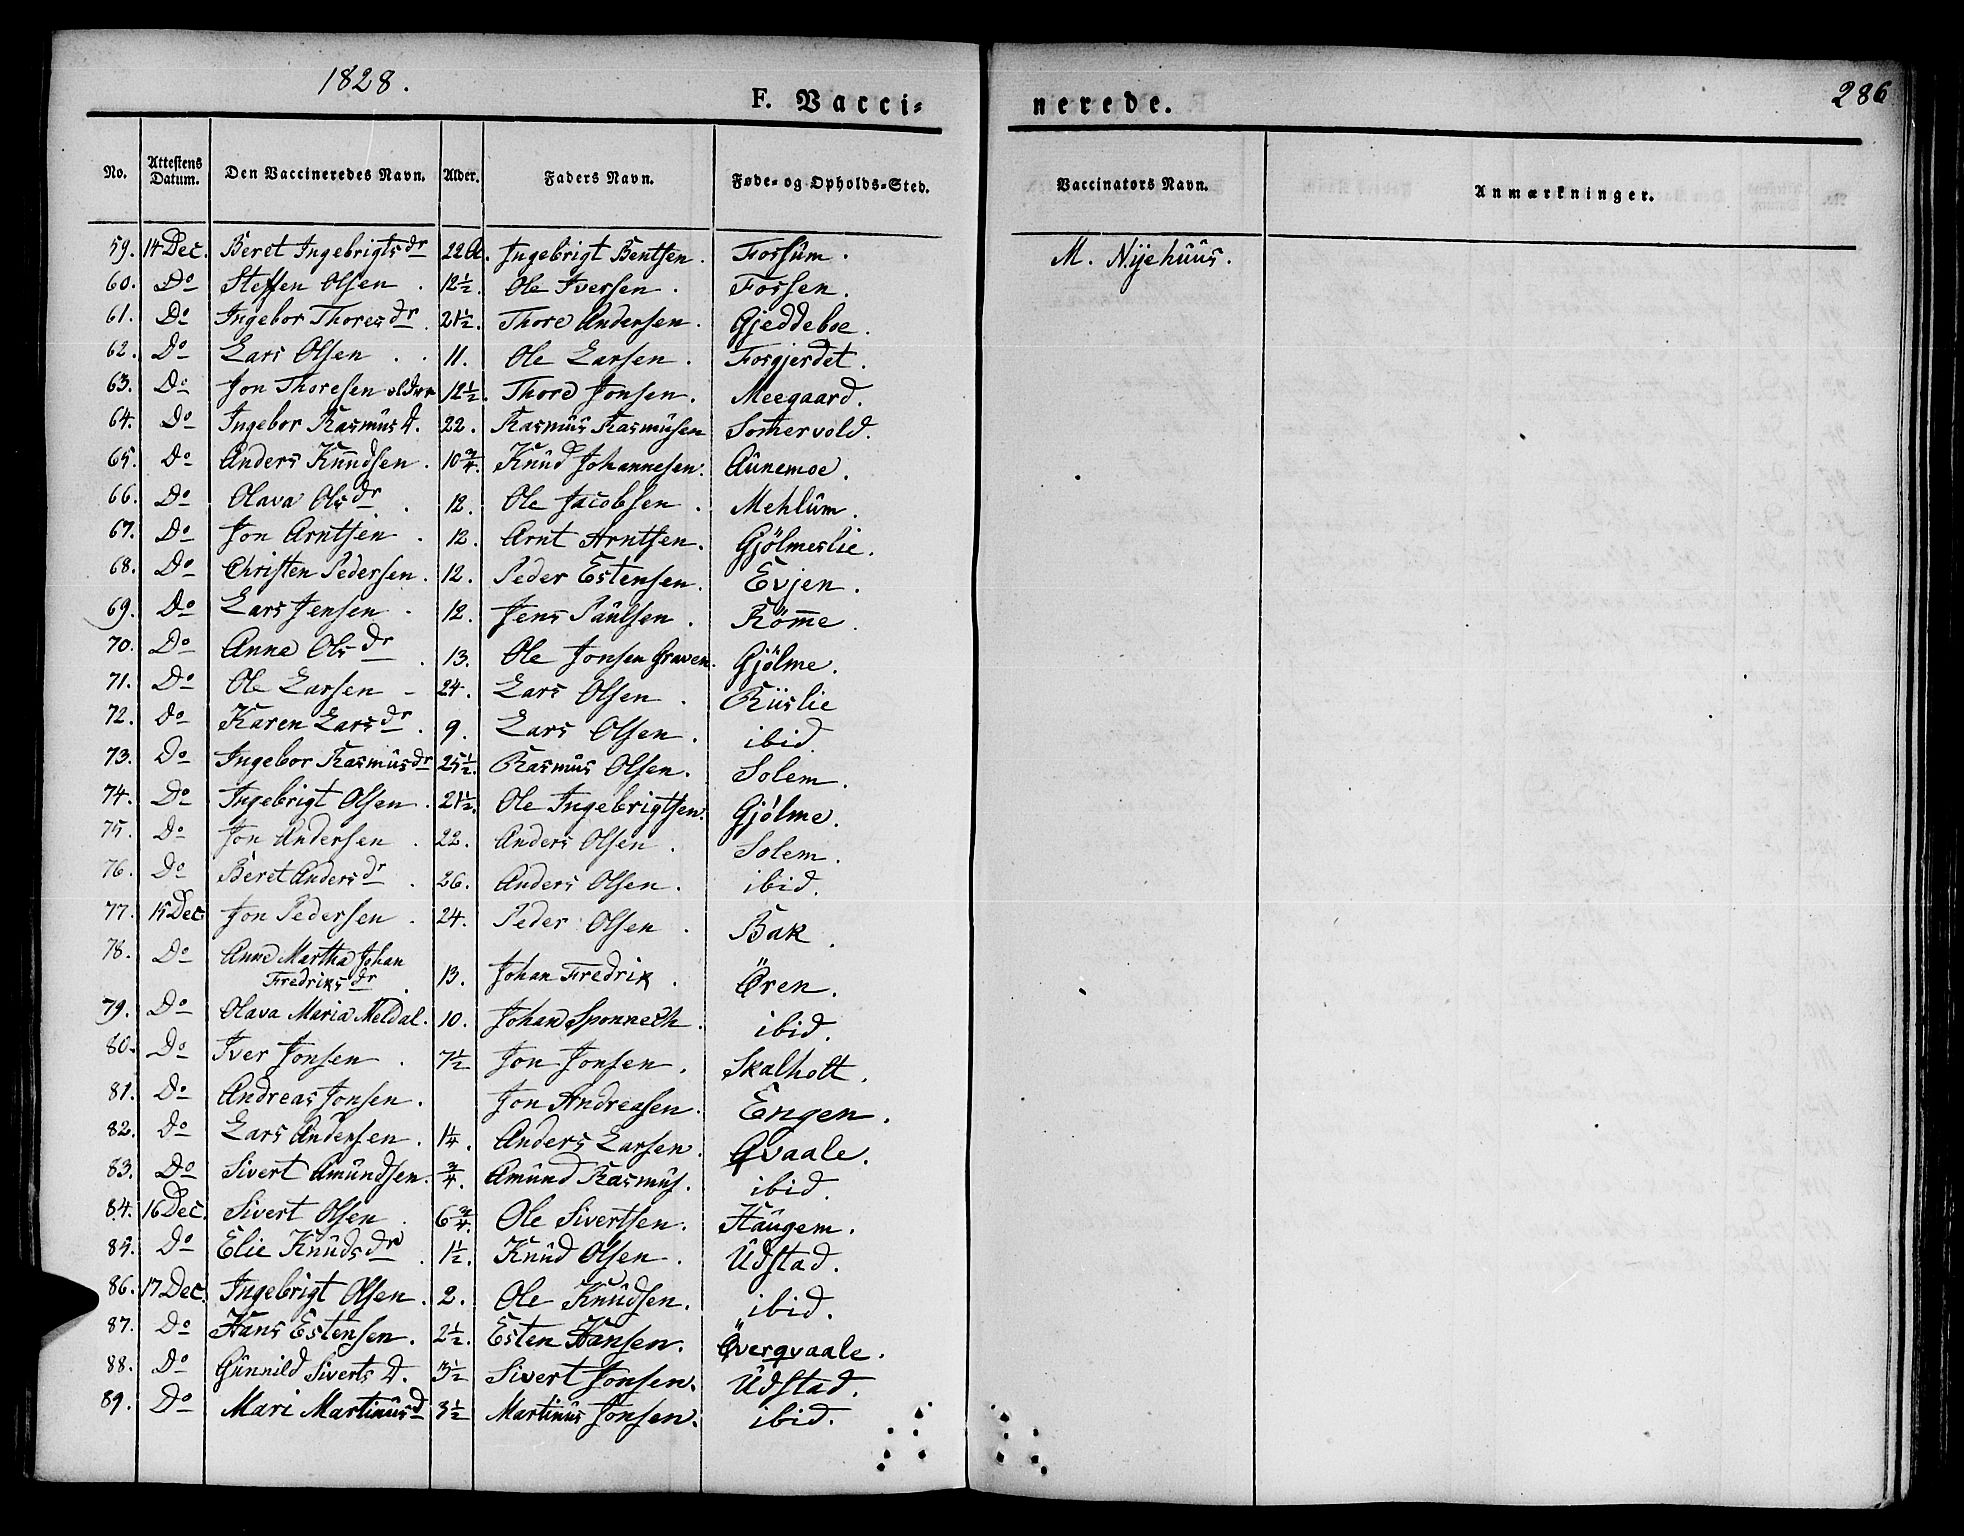 1828.
F. Vacci-
nerede.
286
No. Attestens Datum. Den Vaccineredes Navn. Alder. Faders Navn. Føde- og Opholds-Sted. Vaccinatørs Navn. Anmærkninger.
59. 14 Dec. Beret Ingebrigtsdr 22 Ingebrigt Bentsen. Forsum. M. Nijehuus.
60. Do Steffen Olsen. 12½. Ole Iversen. Fossen.
61. Do Ingebor Thoresdr. 21½. Thore Andersen. Gjeddeboe.
62. Do Lars Olsen.. 11. Ole Larsen. Forgjerdet.
63. Do Jon Thoresen 12½. Thore Jonsen. Meegaard.
64. Do Ingebor Rasmus D. 22. Rasmus Rasmusen Somervold.
65. Do Anders Knudsen. 10¾. Knud Johannesen. Aunemoe.
66. Do Olava Olsdr. 12. Ole Jacobsen. Mehlum.
67. Do Jon Arntsen. 12. Arnt Arntsen. Gjölmeslie.
68. Do Christen Pedersen. 12. Peder Estensen. Evjen.
69. Do Lars Jensen. 12. Jens Paulsen. Röm̄e.
70. Do Anne Olsdr. 13. Ole Jonsen Graven. Gjölme.
71. Do Ole Larsen - 24. Lars Olsen. Riislie
72. Do Karen Larsdr. 9. Lars Olsen. ibid.
73. Do Ingebor Rasmusdr 25½. Rasmus Olsen. Solem.
74. Do Ingebrigt Olsen. 21½. Ole Ingebrigtsen. Gjölme.
75. Do Jon Andersen. 22. Anders Olsen. Solem.
76. Do Beret Andersdr. 26. Anders Olsen. ibid.
77. 15 Dec Jon Pedersen. 24. Peder Olsen. Bak.
78. Do Anne Martha Johan
Fredriksdr. 13. Johan Fredrik. Ören.
79. Do Olava Maria Meldal. 10. Johan Sponnech. ibid.
80. Do Iver Jonsen. 7½ Jon Jonsen. Skalholt.
81. Do Andreas Jonsen. Jon Andreasen. Engen.
82. Do Lars Andersen. 1¼. Anders Larsen. Qvaale.
83. Do Sivert Amundsen. ¾. Amund Rasmus. ibid.
84. 16 Dec. Sivert Olsen. 6¾. Ole Sivertsen. Haugem.
85. Do Elie Knudsdr. 1½. Knud Olsen. Udstad.
86. 17 Dec. Ingebrigt Olsen. 2. Ole Knudsen. ibid.
87. Do Hans Estensen. 2½. Esten Hansen. Överqvaale.
88. Do Gunnild Siverts D. 3½ Sivert Jonsen. Udstad.
89. Do Mari Martinusd 3½ Martinus Jonsen. ibid.